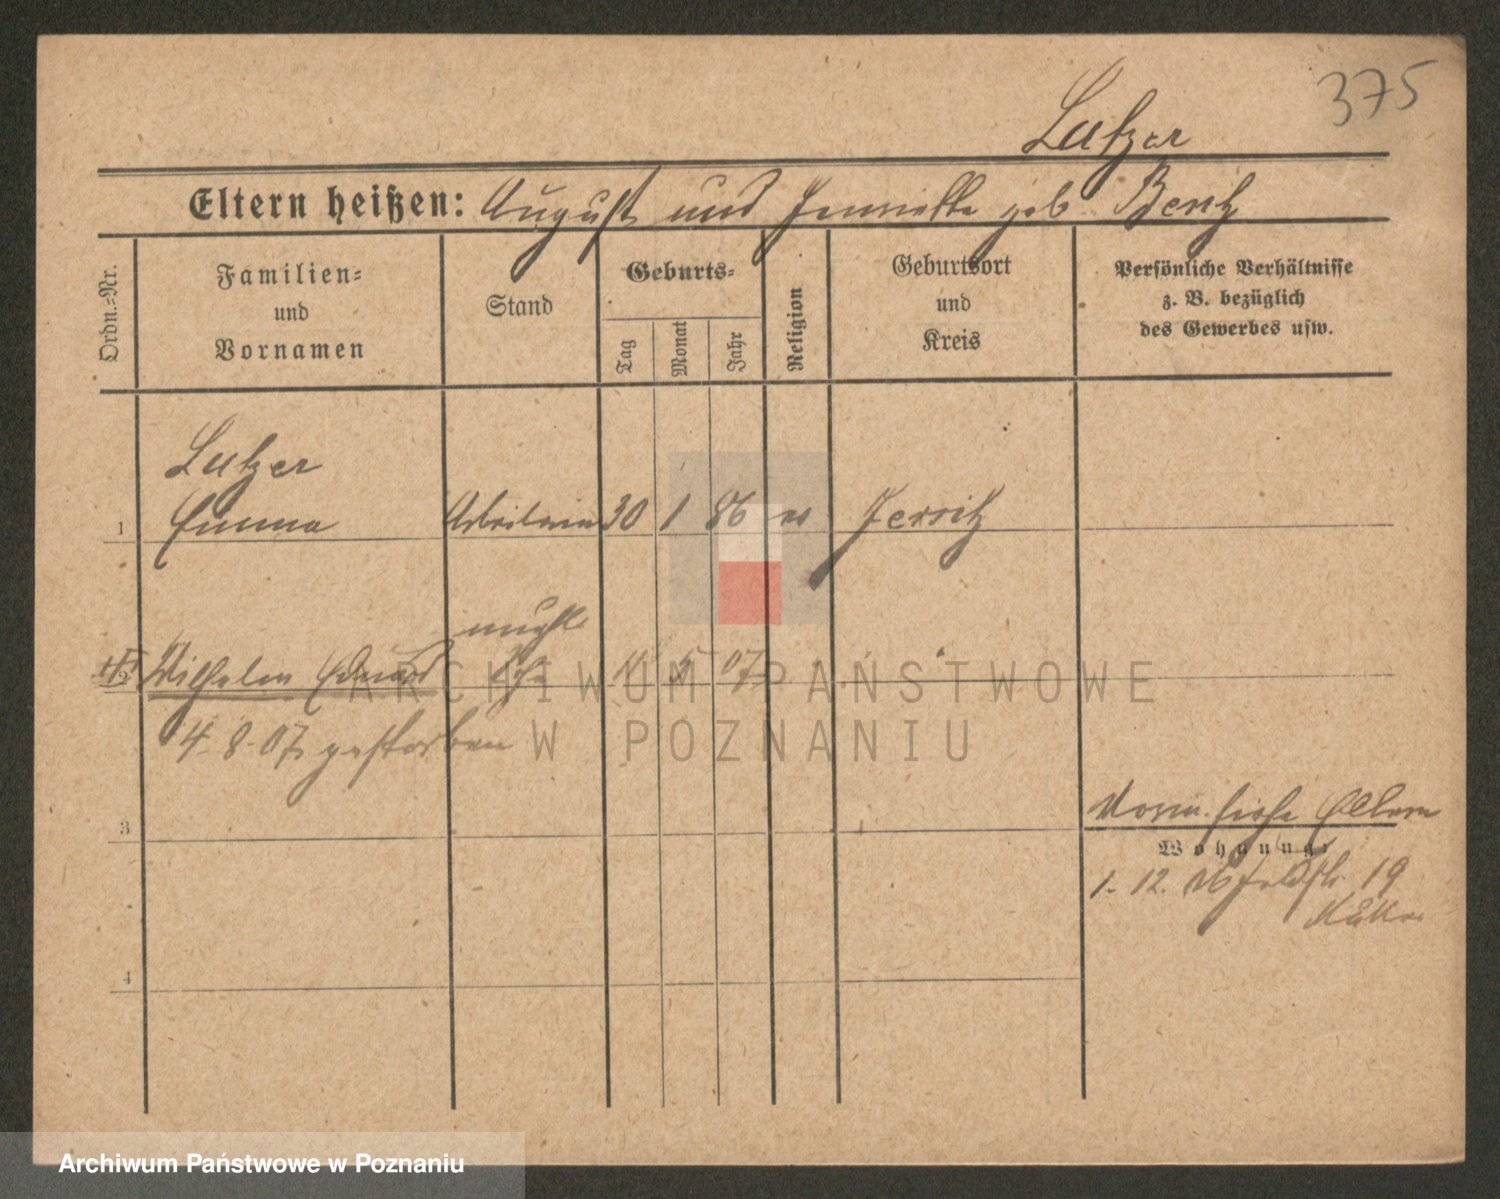 375
Lutzer
Eltern heißen: August und Henriette geb. Bentz
Ordn.=Nr.
Familien=
und
Vornamen
Stand
Geburts=
Tag
Monat
Jahr
Religion
Geburtsort
und
Kreis
Persönliche Verhältnisse
z. B. bezüglich
des Gewerbes usw.
Lutzer
1 Emma Arbeiterin 30 1 86 ev Jersitz
unehl
2 Wilhelm Eduard 11 5 07
4. 8. 07 gestorben
3
Vorm. siehe Eltern
Wohnung:
1. 12. 06 Feldstr. 19
4
ARCHIWUM PAŃSTWOWE
W POZNANIU
Archiwum Państwowe w Poznaniu